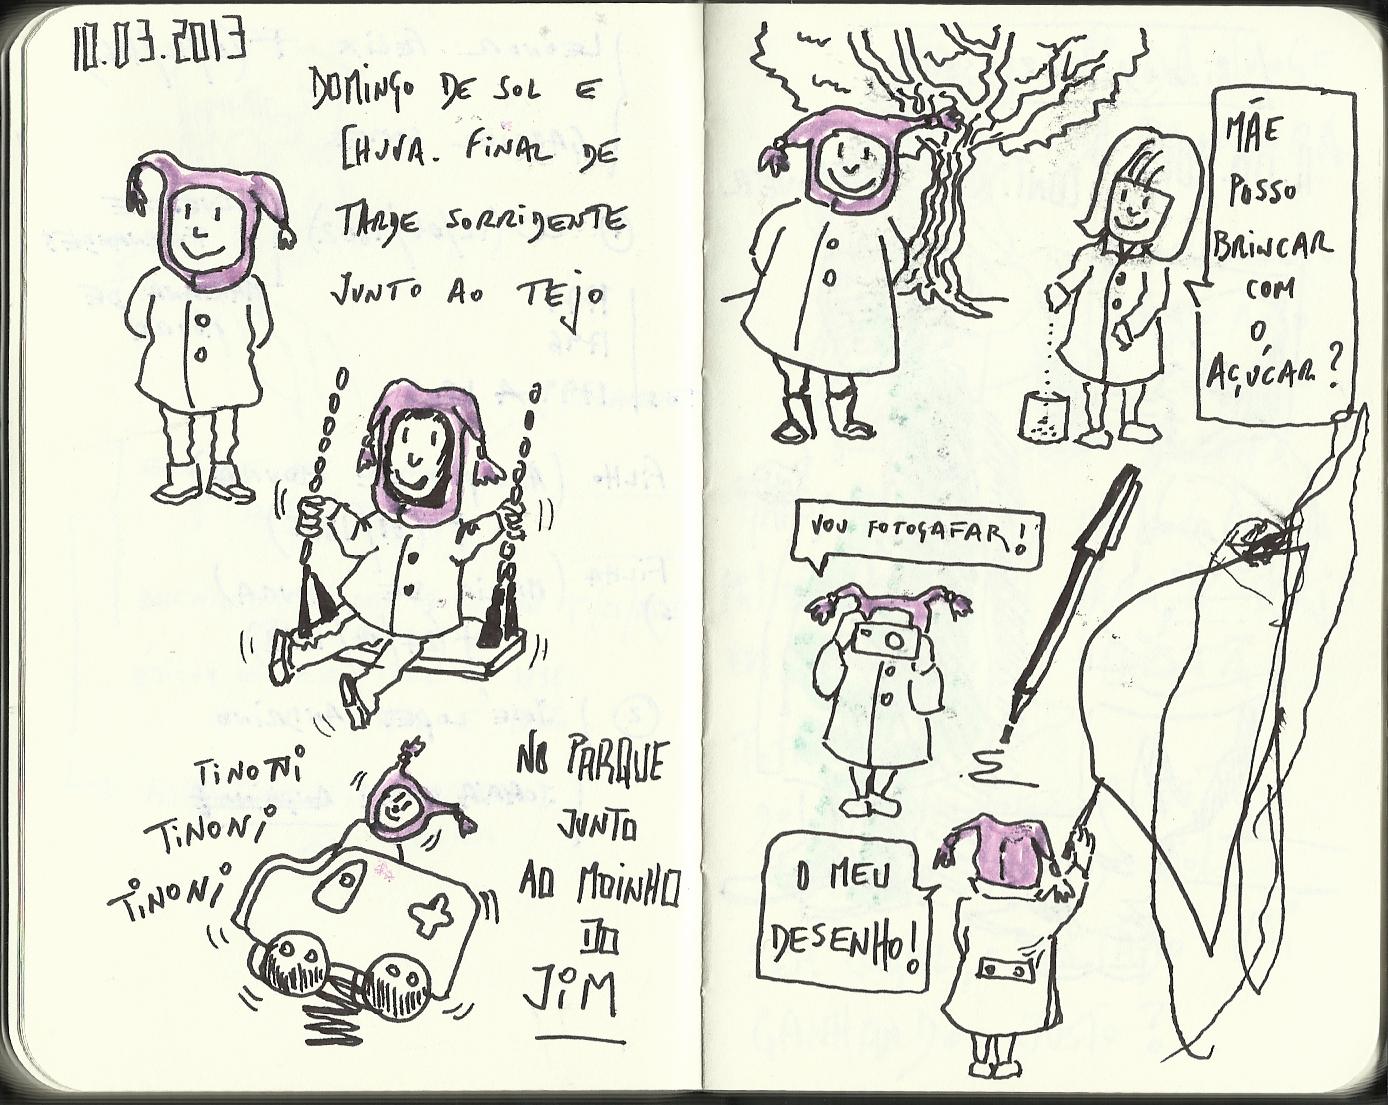 10.03.2013
DOMINGO DE SOL E
CHUVA. FINAL DE
TARDE SORRIDENTE
JUNTO AO TEJO
TINONI
TINONI
TINONI
NO PARQUE
JUNTO
AO MOINHO
DO
JIM
MÃE
POSSO
BRINCAR
COM
O
AÇÚCAR?
VOU FOTOGAFAR!
O MEU
DESENHO!